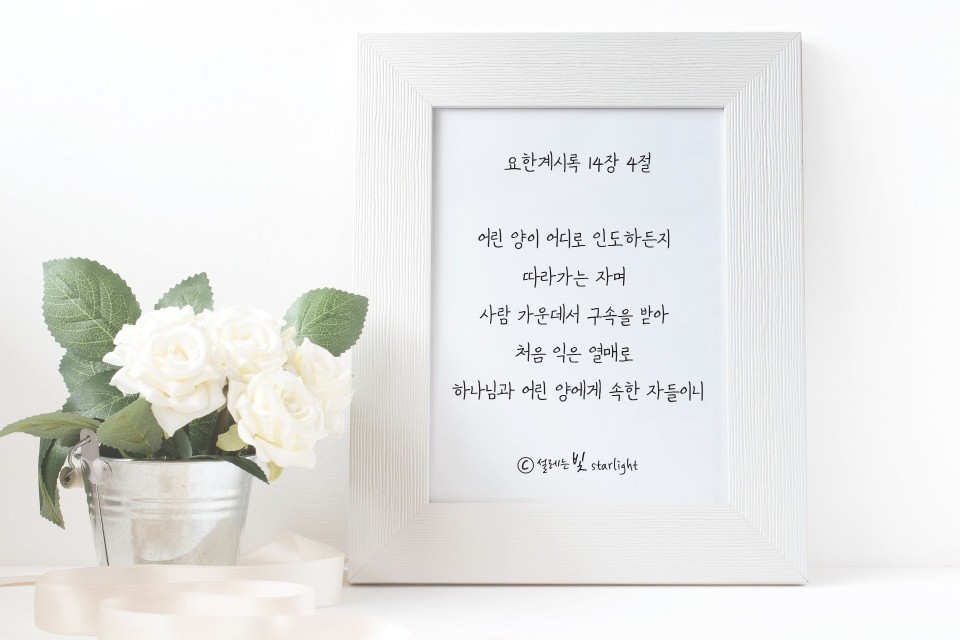 요한계시록 14장 4절
어린 양이 어디로 인도하든지
따라가는 자며
사람 가운데서 구속을 받아
처음 익은 열매로
하나님과 어린 양에게 속한 자들이니
ⓒ 설레는 빛 starlight